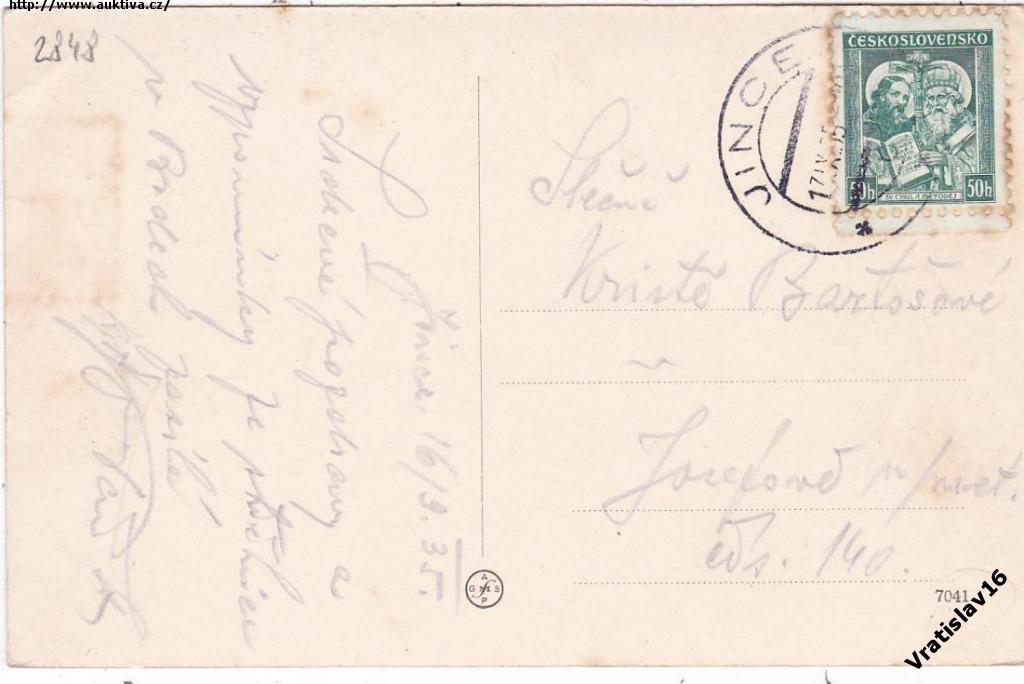 http://www.auktiva.cz/
2848
Jince, 16/9. 35.
Srdečné pozdravy a
vzpomínky ze střelnice
v Brdech posílá
ČESKOSLOVENSKO
50h
50h
SV. CYRIL A METODĚJ
JINCE
Slečně
Kristě Bartošové
v
Josefově n/Met.
čís. 140.
7041
Vratislav16